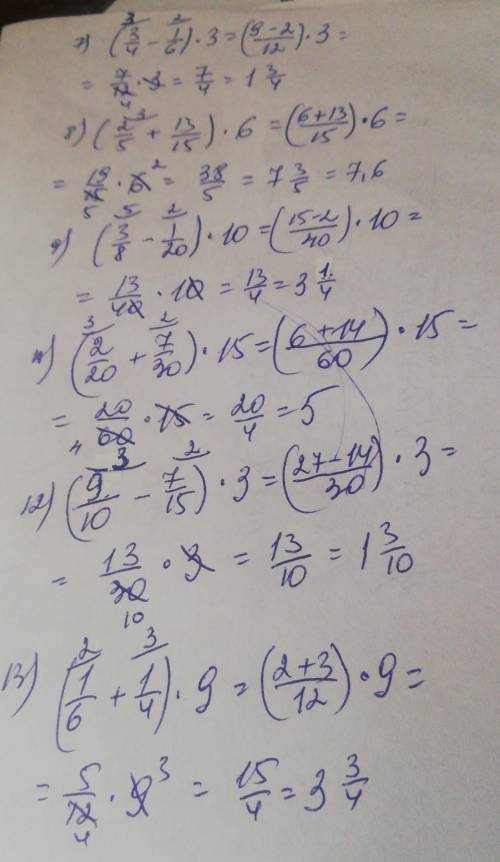 7) (3/4 - 1/6) · 3 = ((9-2)/12) · 3 =
= 7/12 · 3 = 7/4 = 1 3/4
8) (2/5 + 13/15) · 6 = ((6+13)/15) · 6 =
= 19/15 · 6 = 38/5 = 7 3/5 = 7,6
9) (3/8 - 1/20) · 10 = ((15-2)/40) · 10 =
= 13/40 · 10 = 13/4 = 3 1/4
(2/20 + 7/30) · 15 = ((6+14)/60) · 15 =
= 20/60 · 15 = 20/4 = 5
12) (9/10 - 7/15) · 3 = ((27-14)/30) · 3 =
= 13/30 · 3 = 13/10 = 1 3/10
13) (1/6 + 1/4) · 9 = ((2+3)/12) · 9 =
= 5/12 · 9 = 15/4 = 3 3/4